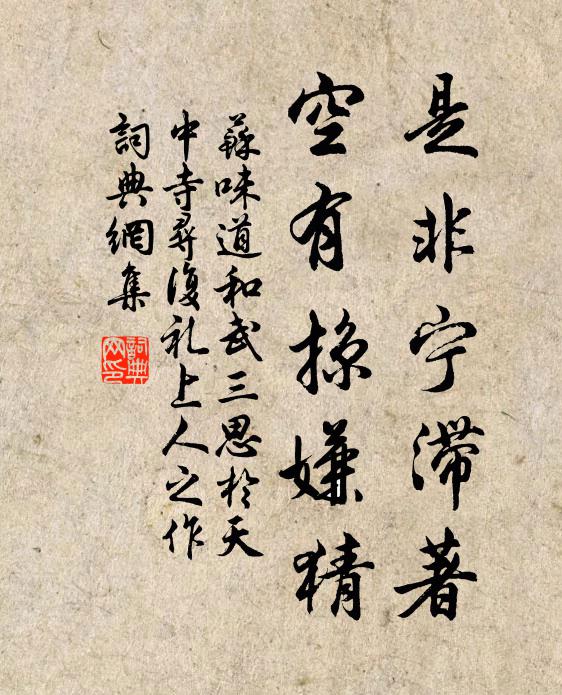 是非宁滞著
空有掠嫌猜
蘇味道和武三思於天
中寺尋復礼上人之作
詞典網集
詞典
网印